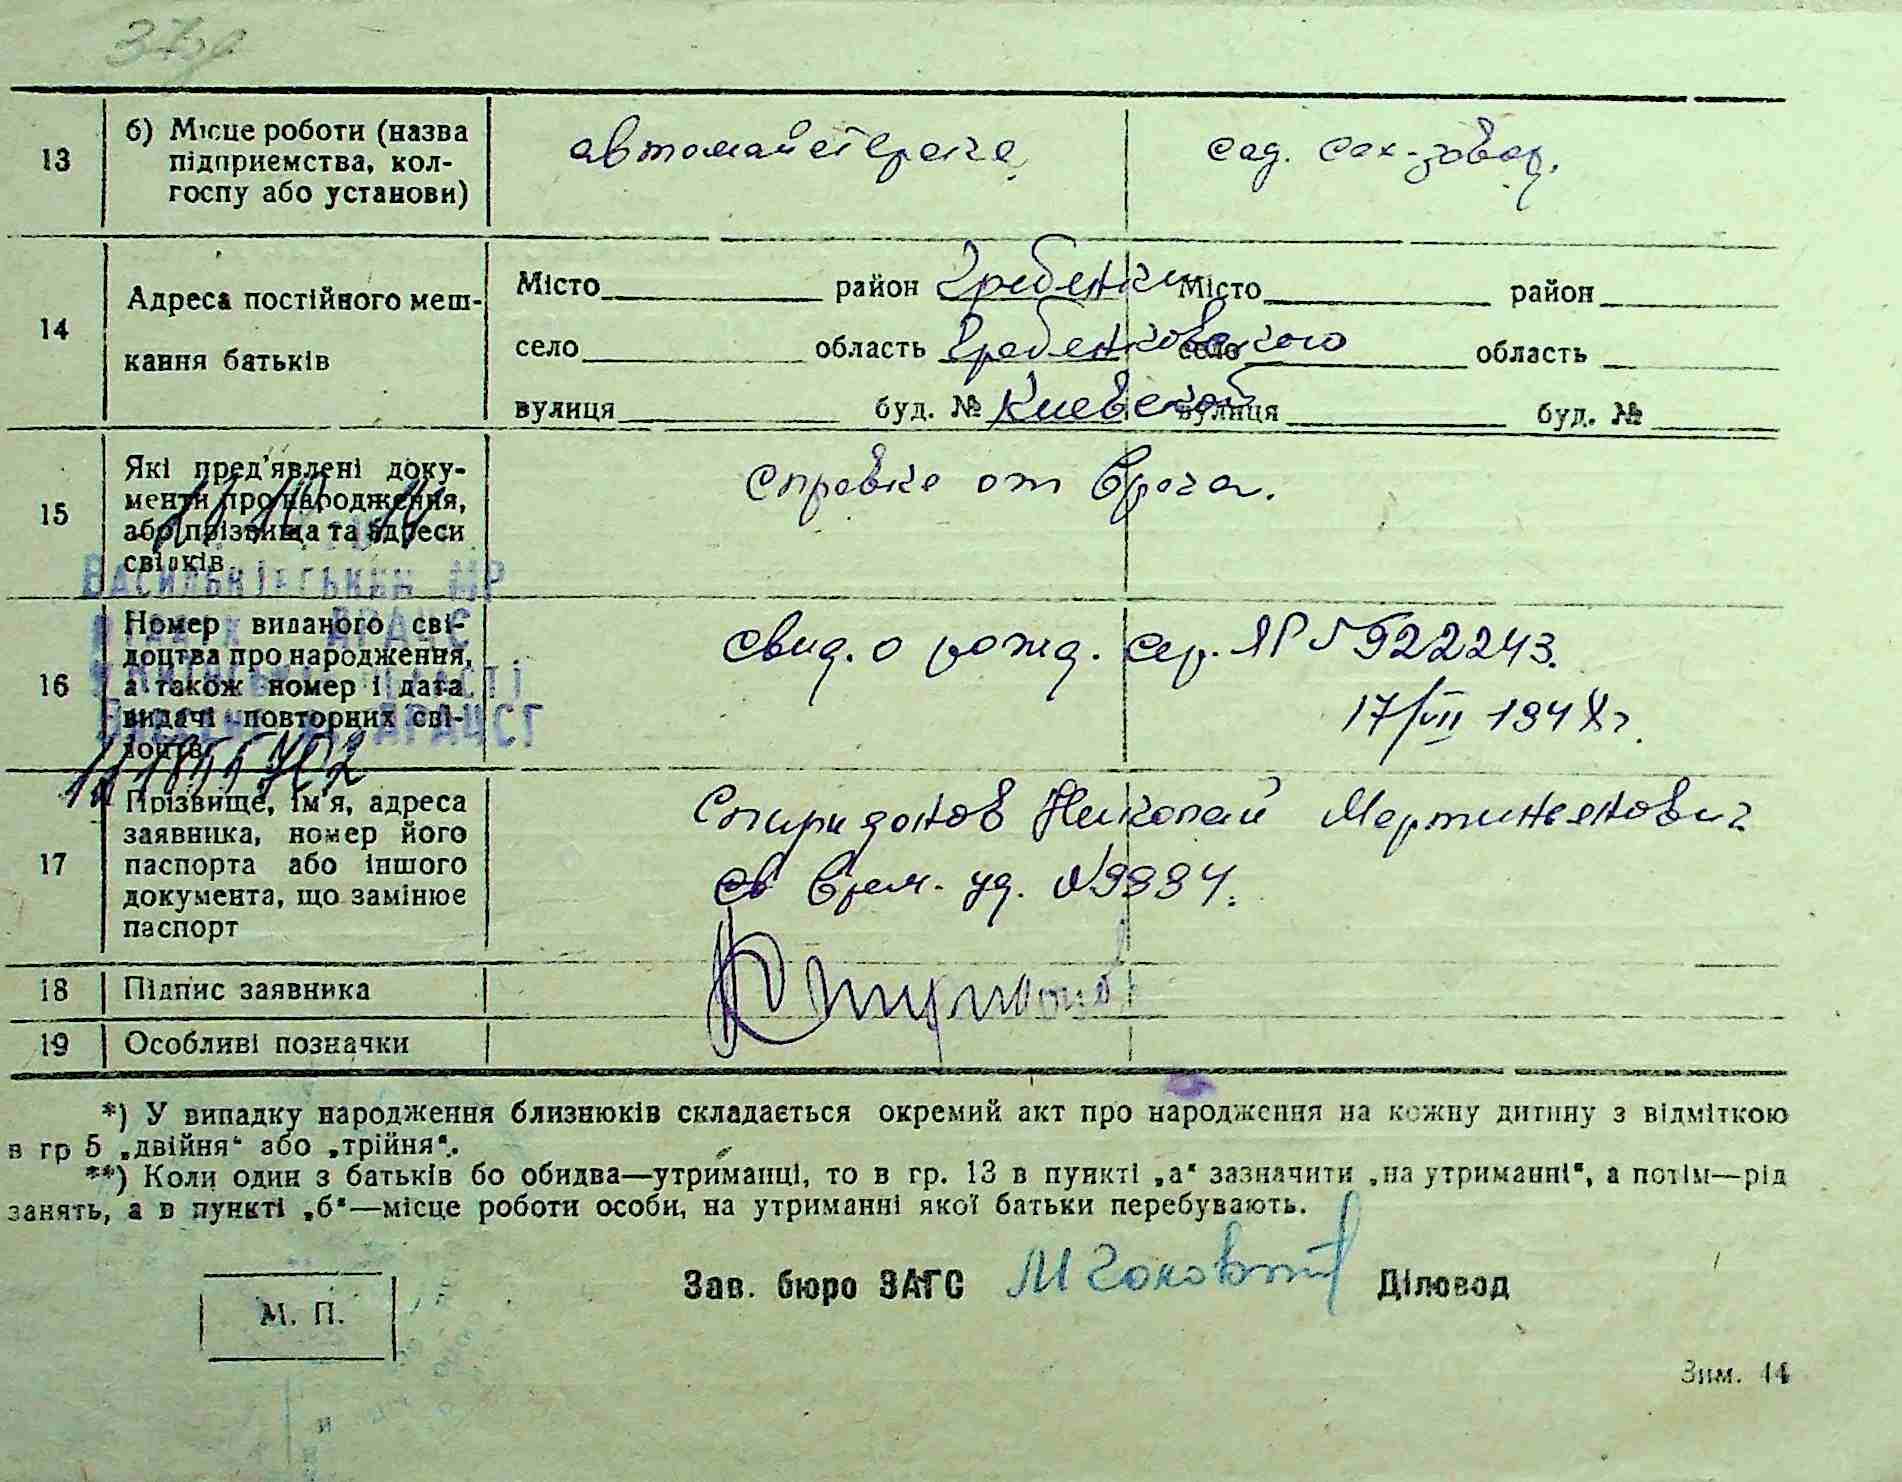 13
б) Місце роботи (назва
підприемства, кол-
госпу або установи)
автомайстерске
сад. сах-завод.
14
Адреса постійного меш-
кання батьків
Місто район Гребенки Місто район
село область Гребенковского село область
вулиця буд. № Киевской вулиця буд. №
15
Які пред'явлені доку-
менти про народження,
або прізвища та адреси
свідків
справка от врача.
Васильківський МР
16
Номер виданого сві-
доцтва про народження,
а також номер і дата
видачі повторних сві-
доцтв
свид. о рожд. сер. ЯР №922243.
17/VII 1948г.
17
Прізвище, ім'я, адреса
заявника, номер його
паспорта або іншого
документа, що замінює
паспорт
Спиридонов Николай Мартиньянович
врем. уд. №9994.
18
Підпис заявника
19
Особливі позначки
*) У випадку народження близнюків складається окремий акт про народження на кожну дитину з відміткою
в гр 5 „двійня“ або „трійня“.
**) Коли один з батьків бо обидва—утриманці, то в гр. 13 в пункті „а“ зазначити „на утриманні“, а потім—рід
занять, а в пункті „б“—місце роботи особи, на утриманні якої батьки перебувають.
Зав. бюро ЗАГС Діловод
М. П.
Зим. 44